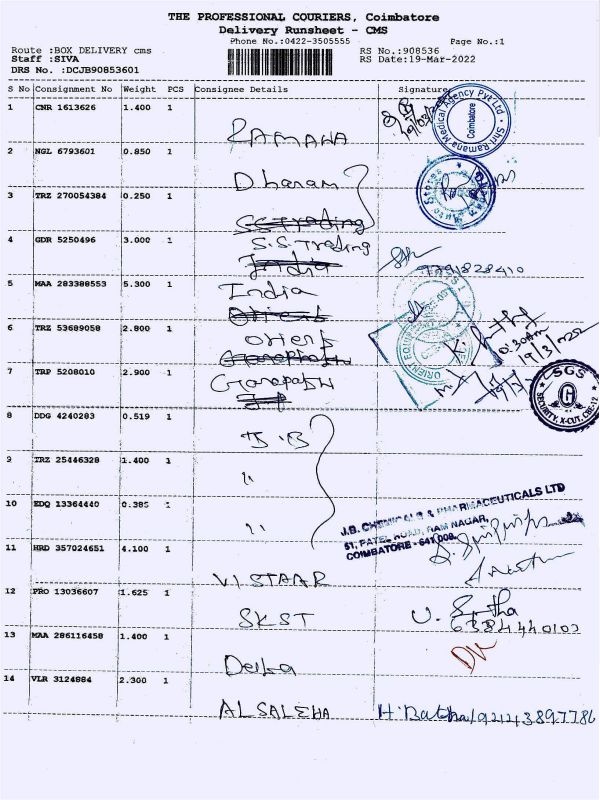 THE PROFESSIONAL COURIERS, Coimbatore
Delivery Runsheet - CMS
Phone No.:0422-3505555 Page No.:1
Route :BOX DELIVERY cms RS No.:908536
Staff :SIVA RS Date:19-Mar-2022
DRS No. :DCJB90853601
S No Consignment No Weight PCS Consignee Details Signature
1 CNR 1613626 1.400 1
RAMANA
Shri Ramana Medical Agency Pvt Ltd
Coimbatore
2 NGL 6793601 0.850 1
Dharam
3 TRZ 270054384 0.250 1
S.S.Trading
4 GDR 5250496 3.000 1
S.S.Trading
India
5 MAA 283388553 5.300 1
India
Orient
6 TRZ 53689058 2.800 1
Orient
7 TRP 5208010 2.900 1
19/3/2022
SGS
SECURITY, X-CUT, CBE-12
8 DDG 4240283 0.519 1
J.B
9 TRZ 25446328 1.400 1
"
10 EDQ 13364440 0.385 1
"
J.B. CHEMICALS & PHARMACEUTICALS LTD
51, PATEL ROAD, RAM NAGAR,
COIMBATORE - 641 009.
11 HRD 357024651 4.100 1
VISTAAR
12 PRO 13036607 1.625 1
SKST
6384440102
13 MAA 286116458 1.400 1
14 VLR 3124884 2.300 1
AL SALEHA